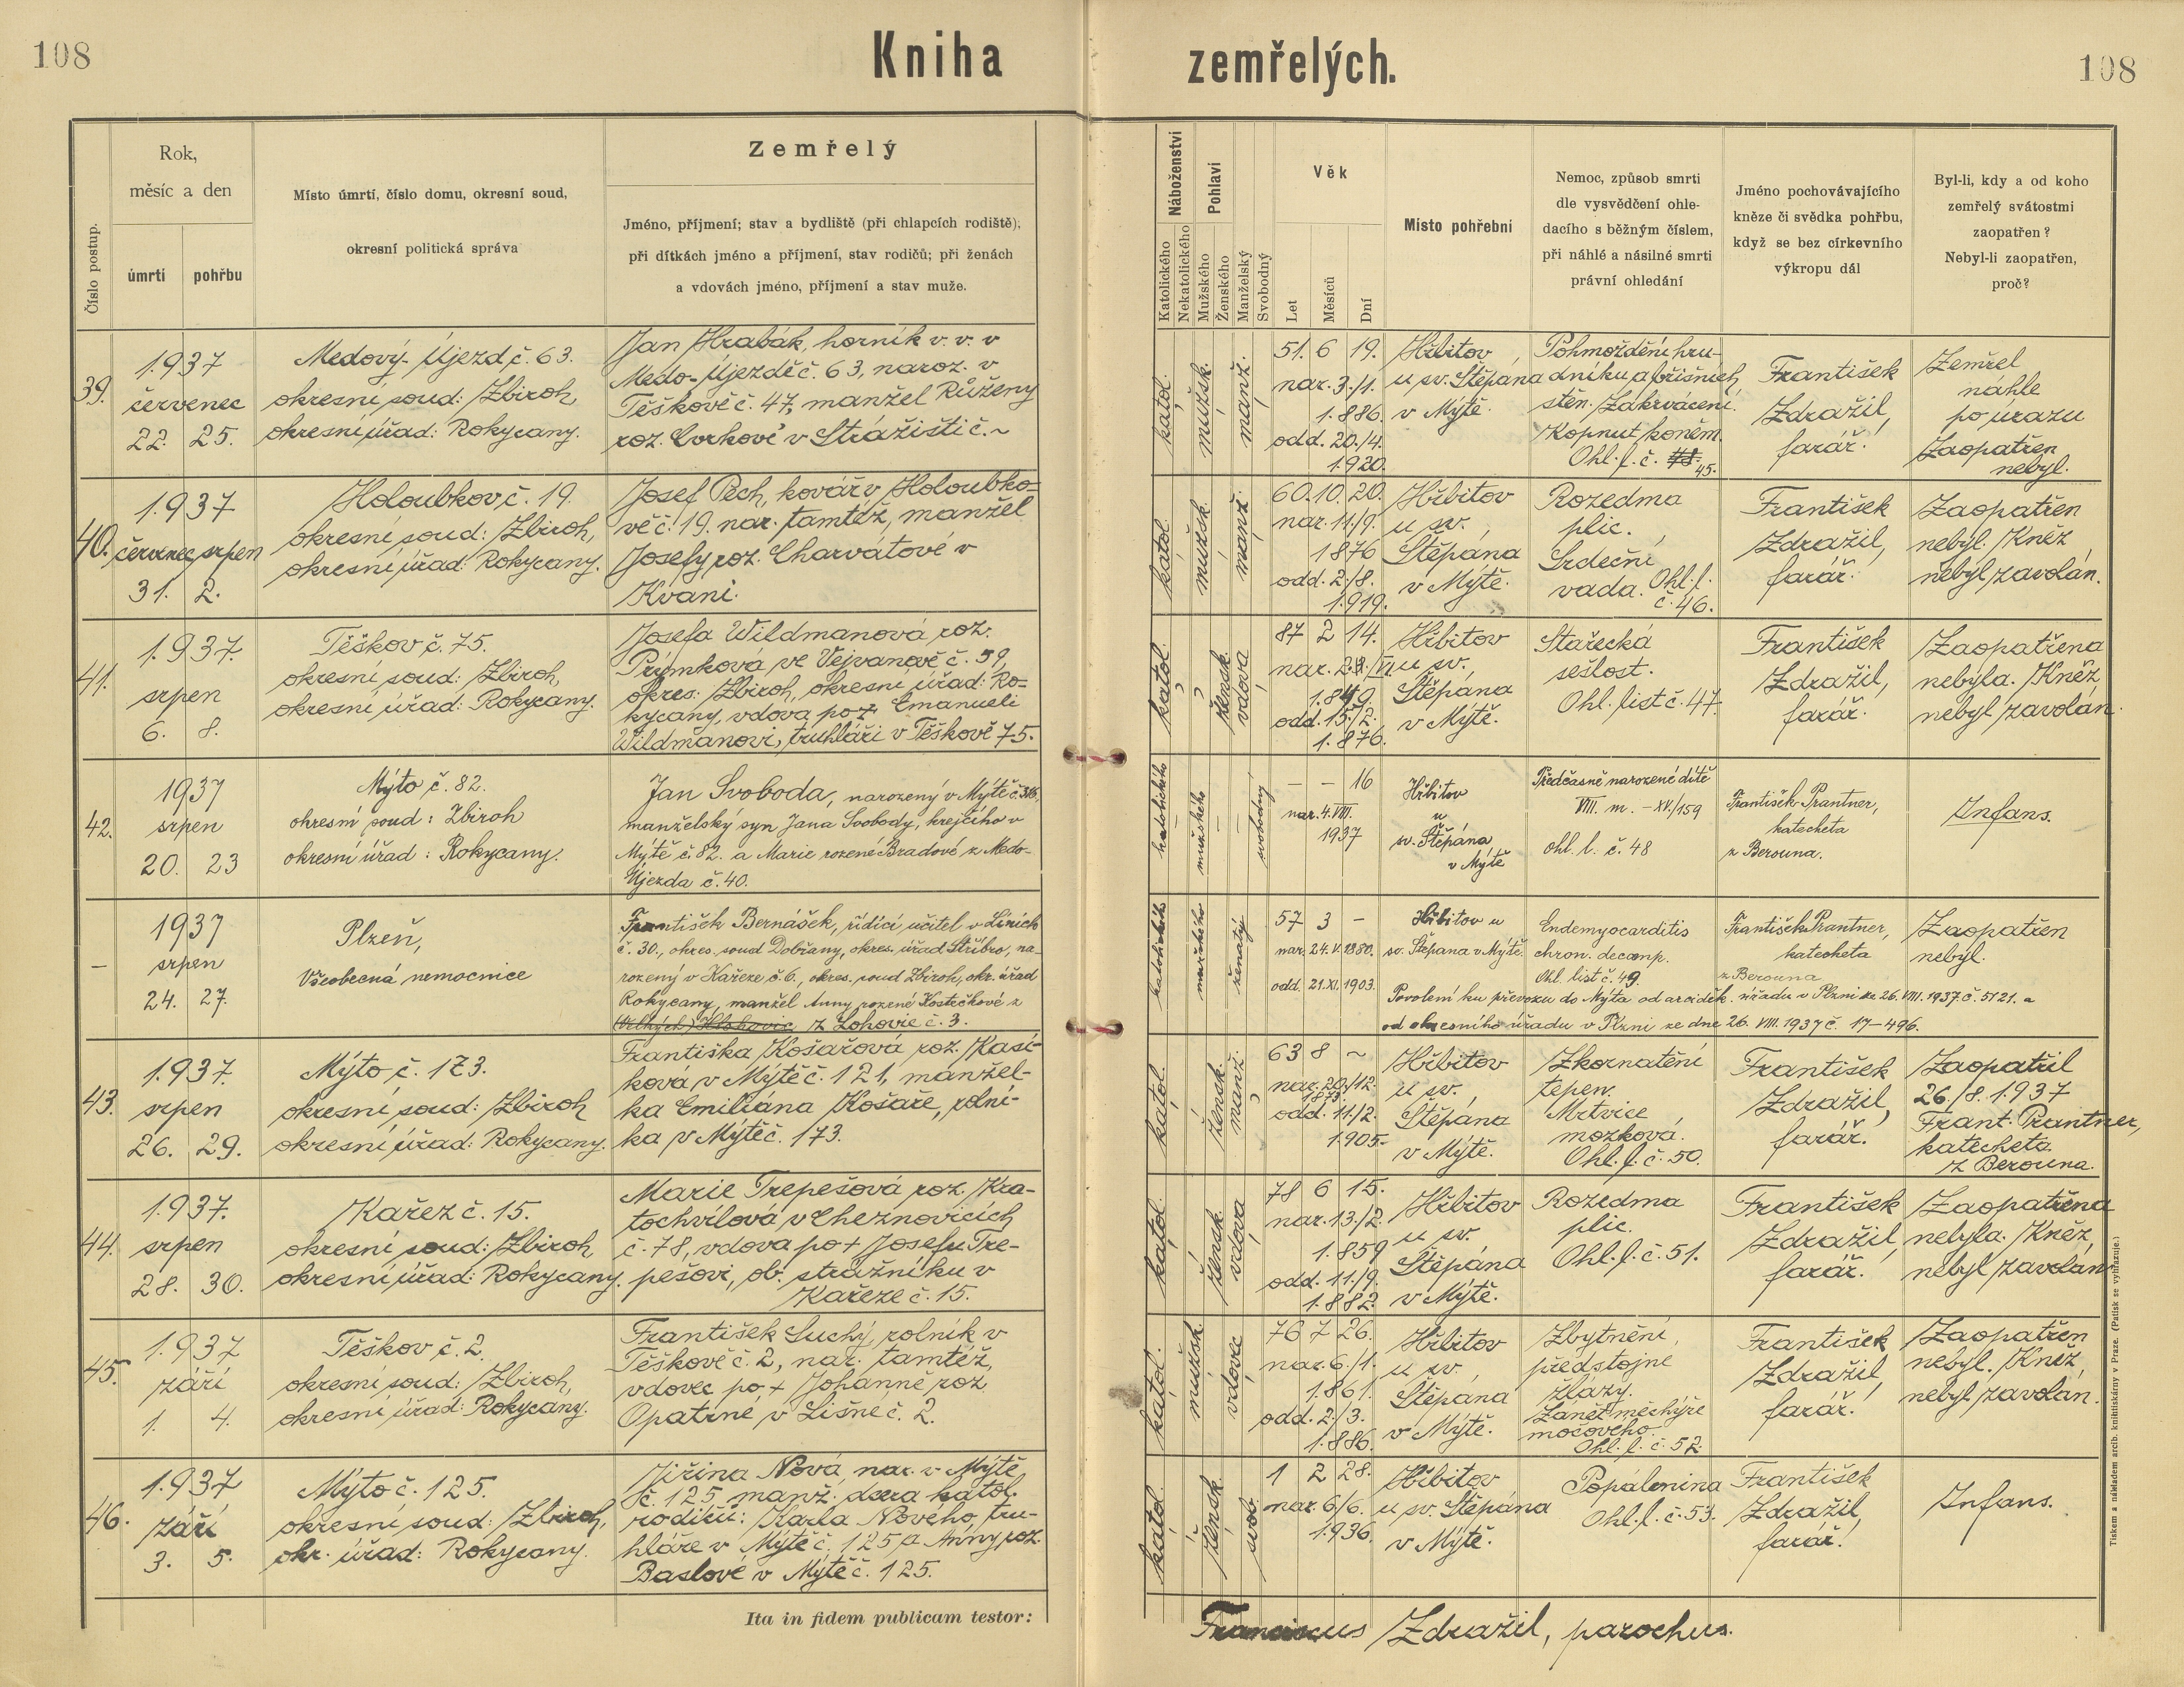 108
Kniha zemřelých.
108
Číslo postup.
Rok,
měsíc a den
úmrtí
pohřbu
Místo úmrtí, číslo domu, okresní soud,
okresní politická správa
Zemřelý
Jméno, příjmení; stav a bydliště (při chlapcích rodiště);
při dítkách jméno a příjmení, stav rodičů; při ženách
a vdovách jméno, příjmení a stav muže.
Náboženství
Katolického
Nekatolického
Pohlaví
Mužského
Ženského
Manželský
Svobodný
Věk
Let
Měsíců
Dní
Místo pohřební
Nemoc, způsob smrti
dle vysvědčení ohle-
dacího s běžným číslem,
při náhlé a násilné smrti
právní ohledání
Jméno pochovávajícího
kněze či svědka pohřbu,
když se bez církevního
výkropu dál
Byl-li, kdy a od koho
zemřelý svátostmi
zaopatřen?
Nebyl-li zaopatřen,
proč?
39.
1937
červenec
22. 25.
Medový-Újezd č. 63.
okresní soud: Zbiroh,
okresní úřad: Rokycany.
Jan Hrabák, horník v. v. v
Medo-Újezdě č. 63, naroz. v
Těškově č. 47, manžel Růženy
roz. Cvrkové v Strážišti č. ~
katol.
mužsk.
manž.
51. 6 19.
nar. 3./1.
1.886.
odd. 20./4.
1920.
Hřbitov
u sv. Štěpána
v Mýtě.
Pohmoždění hru-
dníku a břišních
stěn. Zakrvácení.
Kopnut koněm.
Ohl. l. č. 45.
František
Zdražil,
farář.
Zemřel
náhle
po úrazu
Zaopatřen
nebyl.
40.
1937
červenec srpen
31. 2.
Holoubkov č. 19.
okresní soud: Zbiroh,
okresní úřad: Rokycany.
Josef Pech, kovář v Holoubko-
vě č. 19. nar. tamtéž, manžel
Josefy roz. Charvátové v
Kvani.
katol.
mužsk.
manž.
60. 10. 20.
nar. 11./9.
1876
odd. 2./8.
1.919.
Hřbitov
u sv.
Štěpána
v Mýtě.
Rozedma
plic.
Srdeční
vada. Ohl. l.
č. 46.
František
Zdražil,
farář.
Zaopatřen
nebyl. Kněz
nebyl zavolán.
41.
1937.
srpen
6. 8.
Těškov č. 75.
okresní soud: Zbiroh,
okresní úřad: Rokycany.
Josefa Wildmanová roz.
Průmková ve Vejvanově č. 59,
okres: Zbiroh, okresní úřad: Ro-
kycany, vdova po + Emanueli
Wildmanovi, truhláři v Těškově 75.
katol.
žensk.
vdova
87 2 14.
odd. 15./2.
1.876.
Hřbitov
u sv.
Štěpána
v Mýtě.
Stařecká
sešlost.
Ohl. list č. 47.
František
Zdražil,
farář.
Zaopatřena
nebyla. Kněz
nebyl zavolán.
42.
1937
srpen
20. 23
Mýto č. 82.
okresní soud: Zbiroh
okresní úřad: Rokycany.
Jan Svoboda, narozený v Mýtě č. 316,
manželský syn Jana Svobody, krejčího v
Mýtě č. 82. a Marie rozené Bradové z Medo-
Újezda č. 40.
katolického
mužského
svobodný
– – 16
nar. 4. VIII.
1937
Hřbitov
u
sv. Štěpána
v Mýtě
Předčasně narozené dítě
VIII. m. – XV./159
ohl. l. č. 48
František Prantner,
katecheta
z Berouna.
Infans.
–
1937
srpen
24. 27.
Plzeň,
Všeobecná nemocnice
František Bernášek, řídící učitel v Líních
č. 30., okres. soud Dobřany, okres. úřad Stříbro, na-
rozený v Kařeze č. 6., okres. soud Zbiroh, okr. úřad
Rokycany, manžel Anny rozené Kostečkové z
(Velkých) Hlohovic z Lohovic č. 3.
katolického
mužského
ženatý
57 3 –
nar. 24. V. 1880.
odd. 21. XI. 1903.
Hřbitov u
sv. Štěpána v Mýtě.
Endemyocarditis
chron. decomp.
Ohl. list č. 49.
František Prantner,
katecheta
z Berouna
Zaopatřen
nebyl.
Povolení ku převozu do Mýta od arciděk. úřadu v Plzni ze 26. VIII. 1937 č. 5121. a
od okresního úřadu v Plzni ze dne 26. VIII. 1937 č. 17–496.
43.
1937.
srpen
26. 29.
Mýto č. 173.
okresní soud: Zbiroh
okresní úřad: Rokycany.
Františka Košařová roz. Kasí-
ková v Mýtě č. 121, manžel-
ka Emiliána Košaře, rolní-
ka v Mýtě č. 173.
katol.
žensk.
manž.
63 8 ~
nar. 20./12.
1873.
odd. 11./2.
1905.
Hřbitov
u sv.
Štěpána
v Mýtě.
Zkornatění
tepen.
Mrtvice
mozková.
Ohl. l. č. 50.
František
Zdražil,
farář.
Zaopatřil
26./8. 1937
Frant. Prantner,
katecheta
z Berouna.
44.
1937.
srpen
28. 30.
Kařez č. 15.
okresní soud: Zbiroh
okresní úřad: Rokycany.
Marie Trepešová roz. Kra-
tochvílová v Cheznovicích
č. 78, vdova po + Josefu Tre-
pešovi, ob. strážníku v
Kařeze č. 15.
katol.
žensk.
vdova
78 6 15.
nar. 13./2.
1.859
odd. 11./9.
1.882.
Hřbitov
u sv.
Štěpána
v Mýtě.
Rozedma
plic.
Ohl. l. č. 51.
František
Zdražil,
farář.
Zaopatřena
nebyla. Kněz
nebyl zavolán.
45.
1937
září
1. 4.
Těškov č. 2.
okresní soud: Zbiroh,
okresní úřad: Rokycany.
František Suchý, rolník v
Těškově č. 2, nar. tamtéž,
vdovec po + Johanně roz.
Opatrné v Lišné č. 2.
katol.
mužsk.
vdovec
76 7 26.
nar. 6./1.
1.861.
odd. 2./3.
1.886.
Hřbitov
u sv.
Štěpána
v Mýtě.
Zbytnění
předstojné
žlázy.
Zánět měchýře
močového.
Ohl. l. č. 52.
František
Zdražil,
farář.
Zaopatřen
nebyl. Kněz
nebyl zavolán.
46.
1937
září
3. 5.
Mýto č. 125.
okresní soud: Zbiroh,
okr. úřad: Rokycany.
Jiřina Nová, nar. v Mýtě
č. 125, manž. dcera katol.
rodičů: Karla Nového, tru-
hláře v Mýtě č. 125 a Anny roz.
Baslové v Mýtě č. 125.
katol.
žensk.
svob.
1 2 28.
nar. 6/6.
1.936.
Hřbitov
u sv. Štěpána
v Mýtě.
Popálenina
Ohl. l. č. 53.
František
Zdražil,
farář.
Infans.
Ita in fidem publicam testor:
Franciscus Zdražil, parochus.
Tiskem a nákladem arcib. knihtiskárny v Praze. (Patisk se vyhrazuje.)